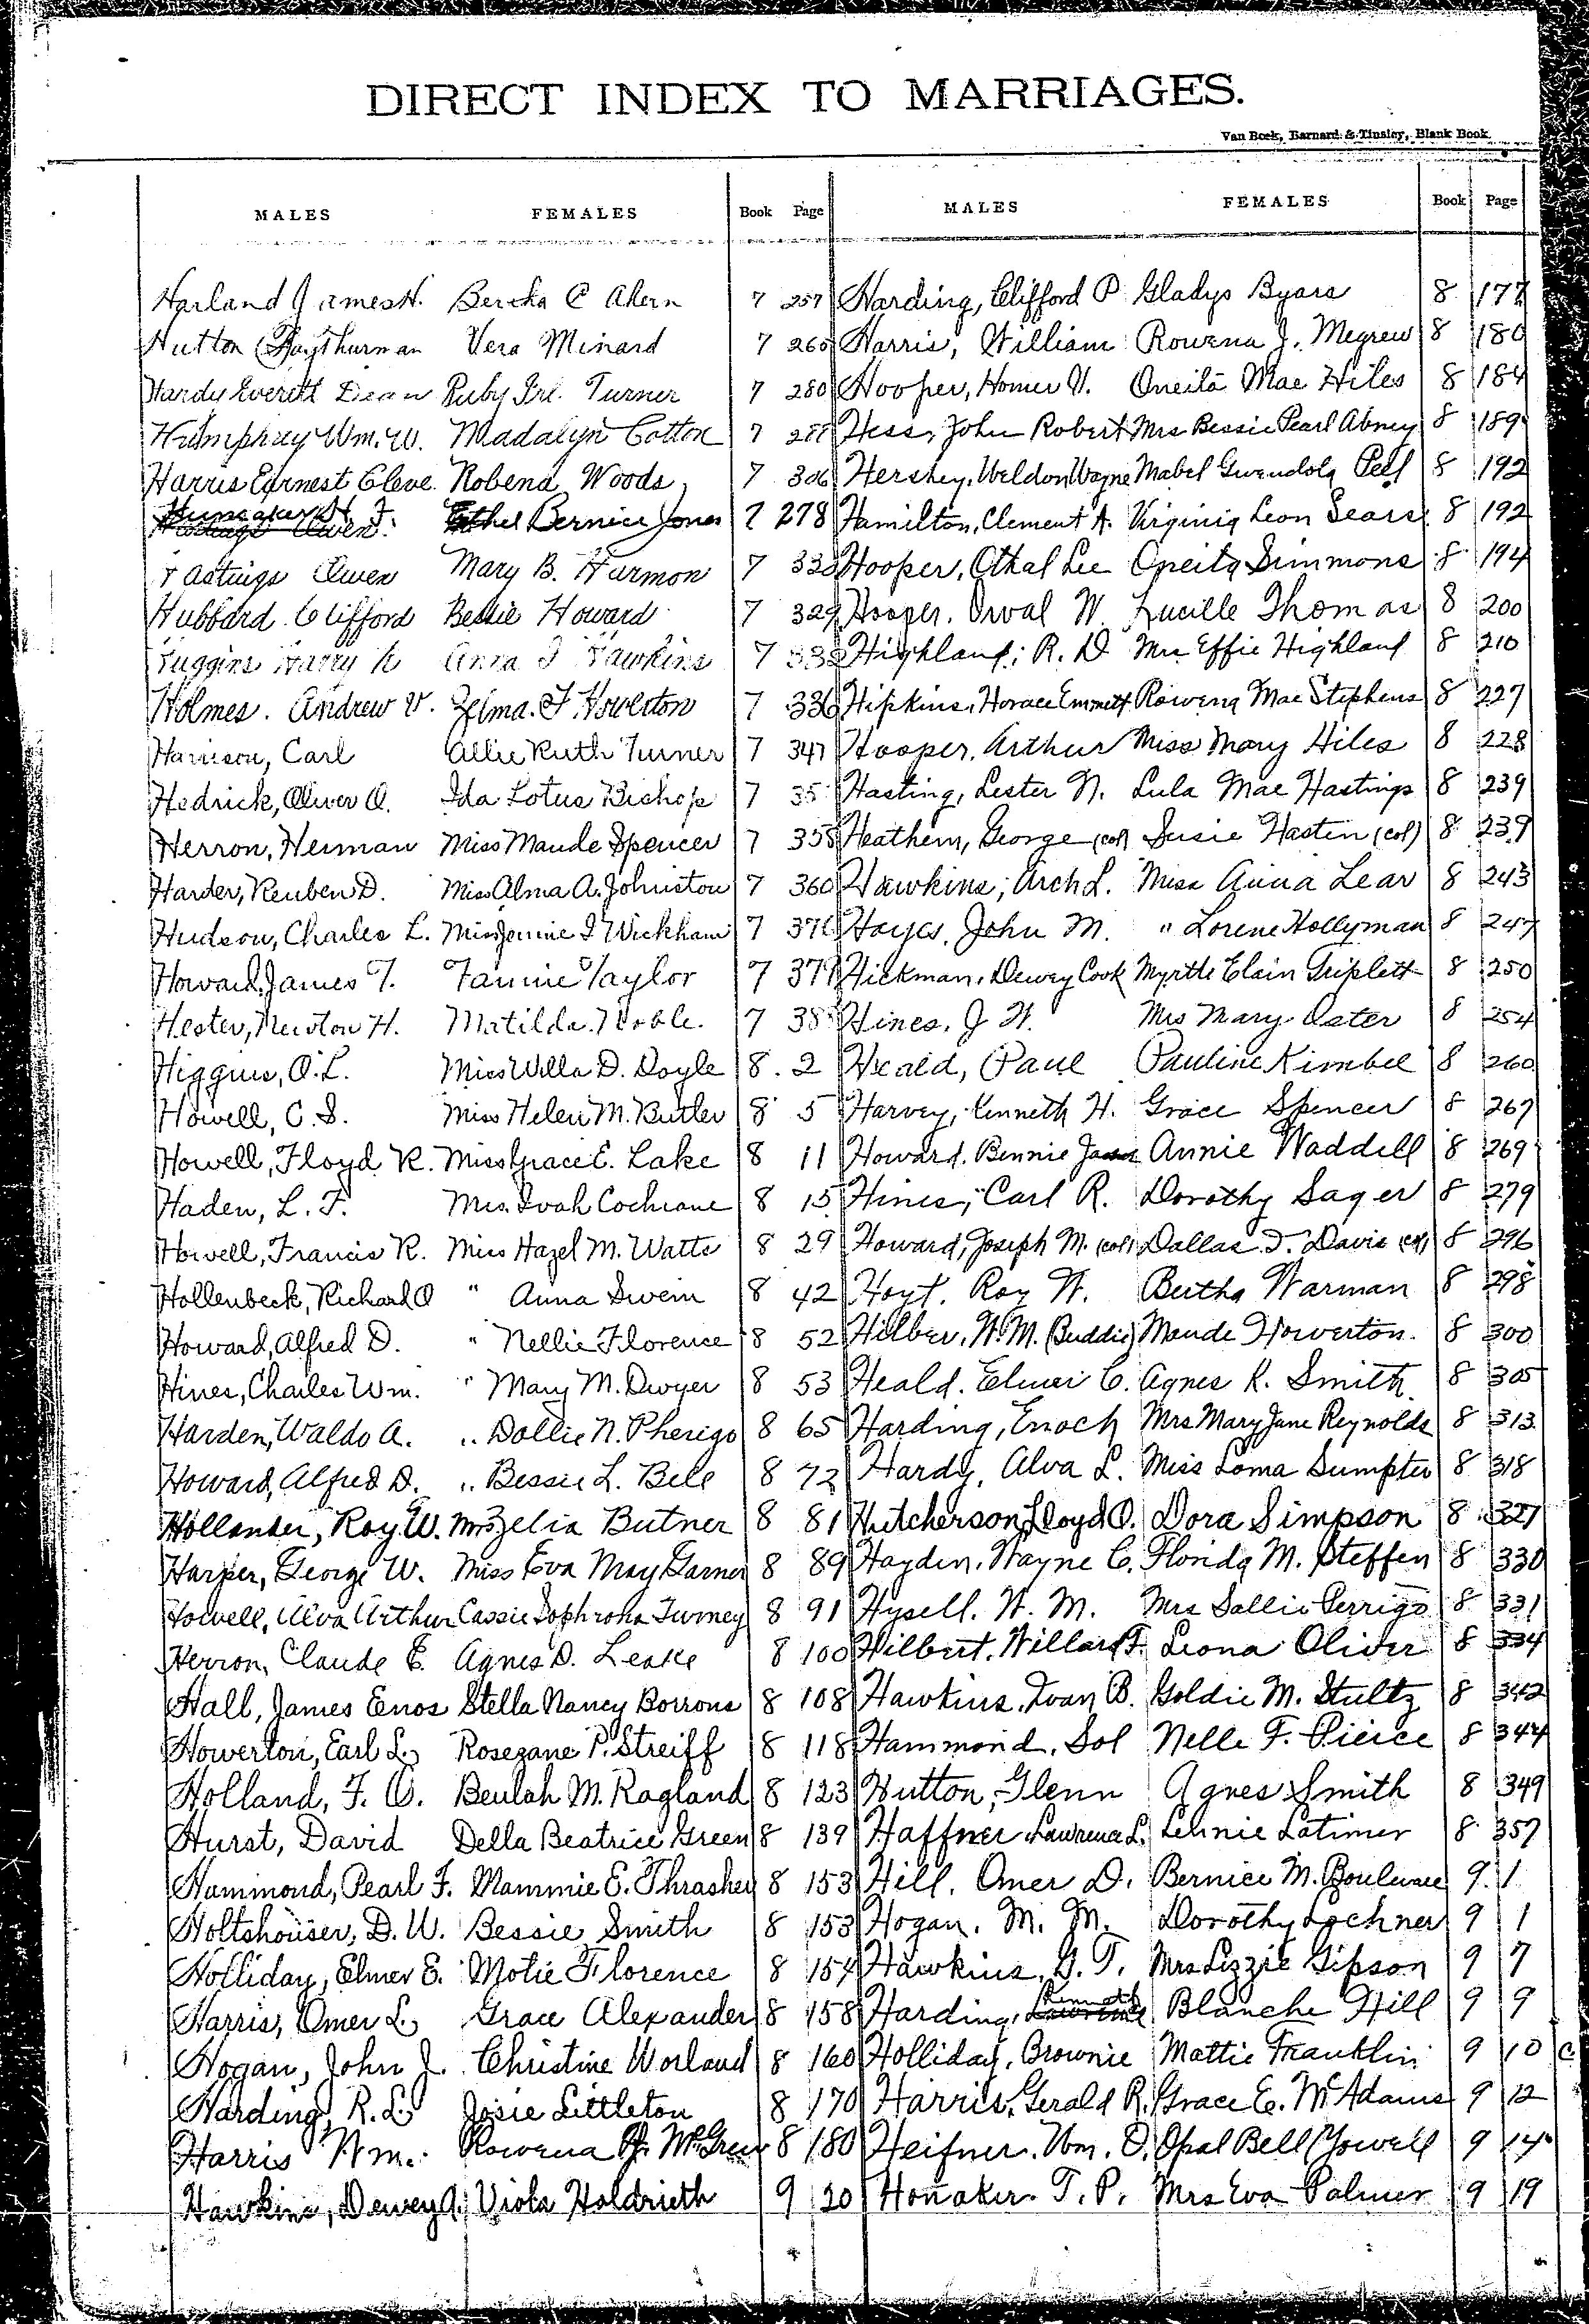 DIRECT INDEX TO MARRIAGES.
Van Boek, Barnard & Tinsley, Blank Book
MALES FEMALES Book Page
Harland James H. Bertha C Ahern 7 257
Hutton Thurman Vera Minard 7 265
Hardy Everett Dean Ruby Irl. Turner 7 280
Humphrey Wm. W. Madalyn Cotton 7
Harris Earnest Cleve Robena Woods 7 306
Hunsaker H. F. Ethel Bernice Jones 7 278
Hastings Owen
Hastings Owen Mary B. Harmon 7
Hubbard Clifford Bessie Howard 7 329
Huggins Harry Anna Hawkins 7
Holmes. Andrew V. Zelma. F. Howerton 7 336
Harrison, Carl Allie Ruth Turner 7 347
Hedrick, Oliver O. Ida Lotus Bishop 7 35
Herron, Herman Miss Maude Spencer 7 358
Harder, Reuben D. Miss Alma A. Johnston 7 360
Hudson, Charles L. Miss Jennie I Wickham 7 376
Howard, James T. Fannie Taylor 7 377
Hester, Newton H. Matilda Noble. 7 38
Higgins, O. L. Miss Willa D. Doyle 8 2
Howell, C. S. Miss Helen M. Butler 8 5
Howell, Floyd R. Miss Grace E. Lake 8 11
Haden, L. F. Mrs. Ivah Cochrane 8 15
Howell, Francis R. Miss Hazel M. Watts 8 29
Hollenbeck, Richard O " Anna Swein 8 42
Howard, Alfred D. " Nellie Florence 8 52
Hines, Charles Wm. " Mary M. Dwyer 8 53
Harden, Waldo A. " Dollie N. Pherigo 8 65
Howard, Alfred D. " Bessie L. Bell 8 72
Hollander, Roy W. Mrs Zelia Butner 8 81
Harper, George W. Miss Eva May Garner 8 89
Howell, Alva Arthur Cassie Sophrona Turney 8 91
Herron, Claude E. Agnes D. Leake 8 100
Hall, James Enos Stella Nancy Borrons 8 108
Howerton, Earl L. Rosezane P. Streiff 8 118
Holland, F. O. Beulah M. Ragland 8 123
Hurst, David Della Beatrice Green 8 139
Hammond, Pearl F. Mammie E. Thrasher 8 153
Holtshouser, D. W. Bessie Smith 8 153
Holliday, Elmer E. Motie Florence 8 154
Harris, Omer L. Grace Alexander 8 158
Hogan, John J. Christine Worland 8 160
Harding, R. L. Josie Littleton 8 170
Harris Wm. Rowena J. McGrew 8 180
Hawkins, Dewey A. Viola Holdrieth 9 20
MALES FEMALES Book Page
Harding, Clifford P. Gladys Byars 8 177
Harris, William Rowena J. Megrew 8 180
Hooper, Homer V. Oneita Mae Hiles 8 184
Hess, John Robert Mrs Bessie Pearl Abney 8 189
Hershey, Weldon Wayne Mabel Gwendola Peel 8 192
Hamilton, Clement A. Virginia Leon Sears 8 192
Hooper, Othal Lee Oneita Simmons 8 194
Hooper, Orval W. Lucille Thomas 8 200
Highland, R. D Mrs Effie Highland 8 210
Hipkins, Horace Emmett Rowena Mae Stephens 8 227
Hooper, Arthur Miss Mary Hiles 8 228
Hasting, Lester N. Lula Mae Hastings 8 239
Heathern, George (col) Susie Hasten (col) 8 239
Hawkins, Arch L. Miss Anna Lear 8 243
Hayes, John M. " Lorene Hollyman 8 247
Hickman, Dewey Cook Myrtle Elain Triplett 8 250
Hines, J. W. Mrs Mary Oster 8 254
Heald, Paul Pauline Kimbel 8 260
Harvey, Kenneth H. Grace Spencer 8 267
Howard, Bennie James Annie Waddell 8 269
Hines, Carl R. Dorothy Sager 8 279
Howard, Joseph M. (col) Dallas T. Davis (col) 8 296
Hoyt, Roy W. Bertha Warman 8 298
Hilber, W. M. (Buddie) Maude Howerton. 8 300
Heald, Elmer C. Agnes K. Smith 8 305
Harding, Enoch Mrs Mary Jane Reynolds 8 313
Hardy, Alva L. Miss Loma Sumpter 8 318
Hutcherson, Lloyd O. Dora Simpson 8 327
Hayden, Wayne C. Florida M. Steffen 8 330
Hysell, W. M. Mrs Sallie Perrigo 8 331
Hilbert, Willard F. Leona Oliver 8 334
Hawkins, Ivan B. Goldie M. Stultz 8 342
Hammond, Sol Nelle F. Pierce 8 344
Hutton, Glenn Agnes Smith 8 349
Haffner Lawrence L. Lennie Latimer 8 357
Hill, Omer D. Bernice M. Bouleware 9 1
Hogan, M. M. Dorothy Lochner 9 1
Hawkins, G. T. Mrs Lizzie Gipson 9 7
Harding, Kenneth Blanche Hill 9 9
Holliday, Brownie Mattie Franklin 9 10 C
Harris, Gerald R. Grace E. McAdams 9 12
Heifner, Wm. O. Opal Bell Yowell 9 14
Honaker, T. P. Mrs Eva Palmer 9 19